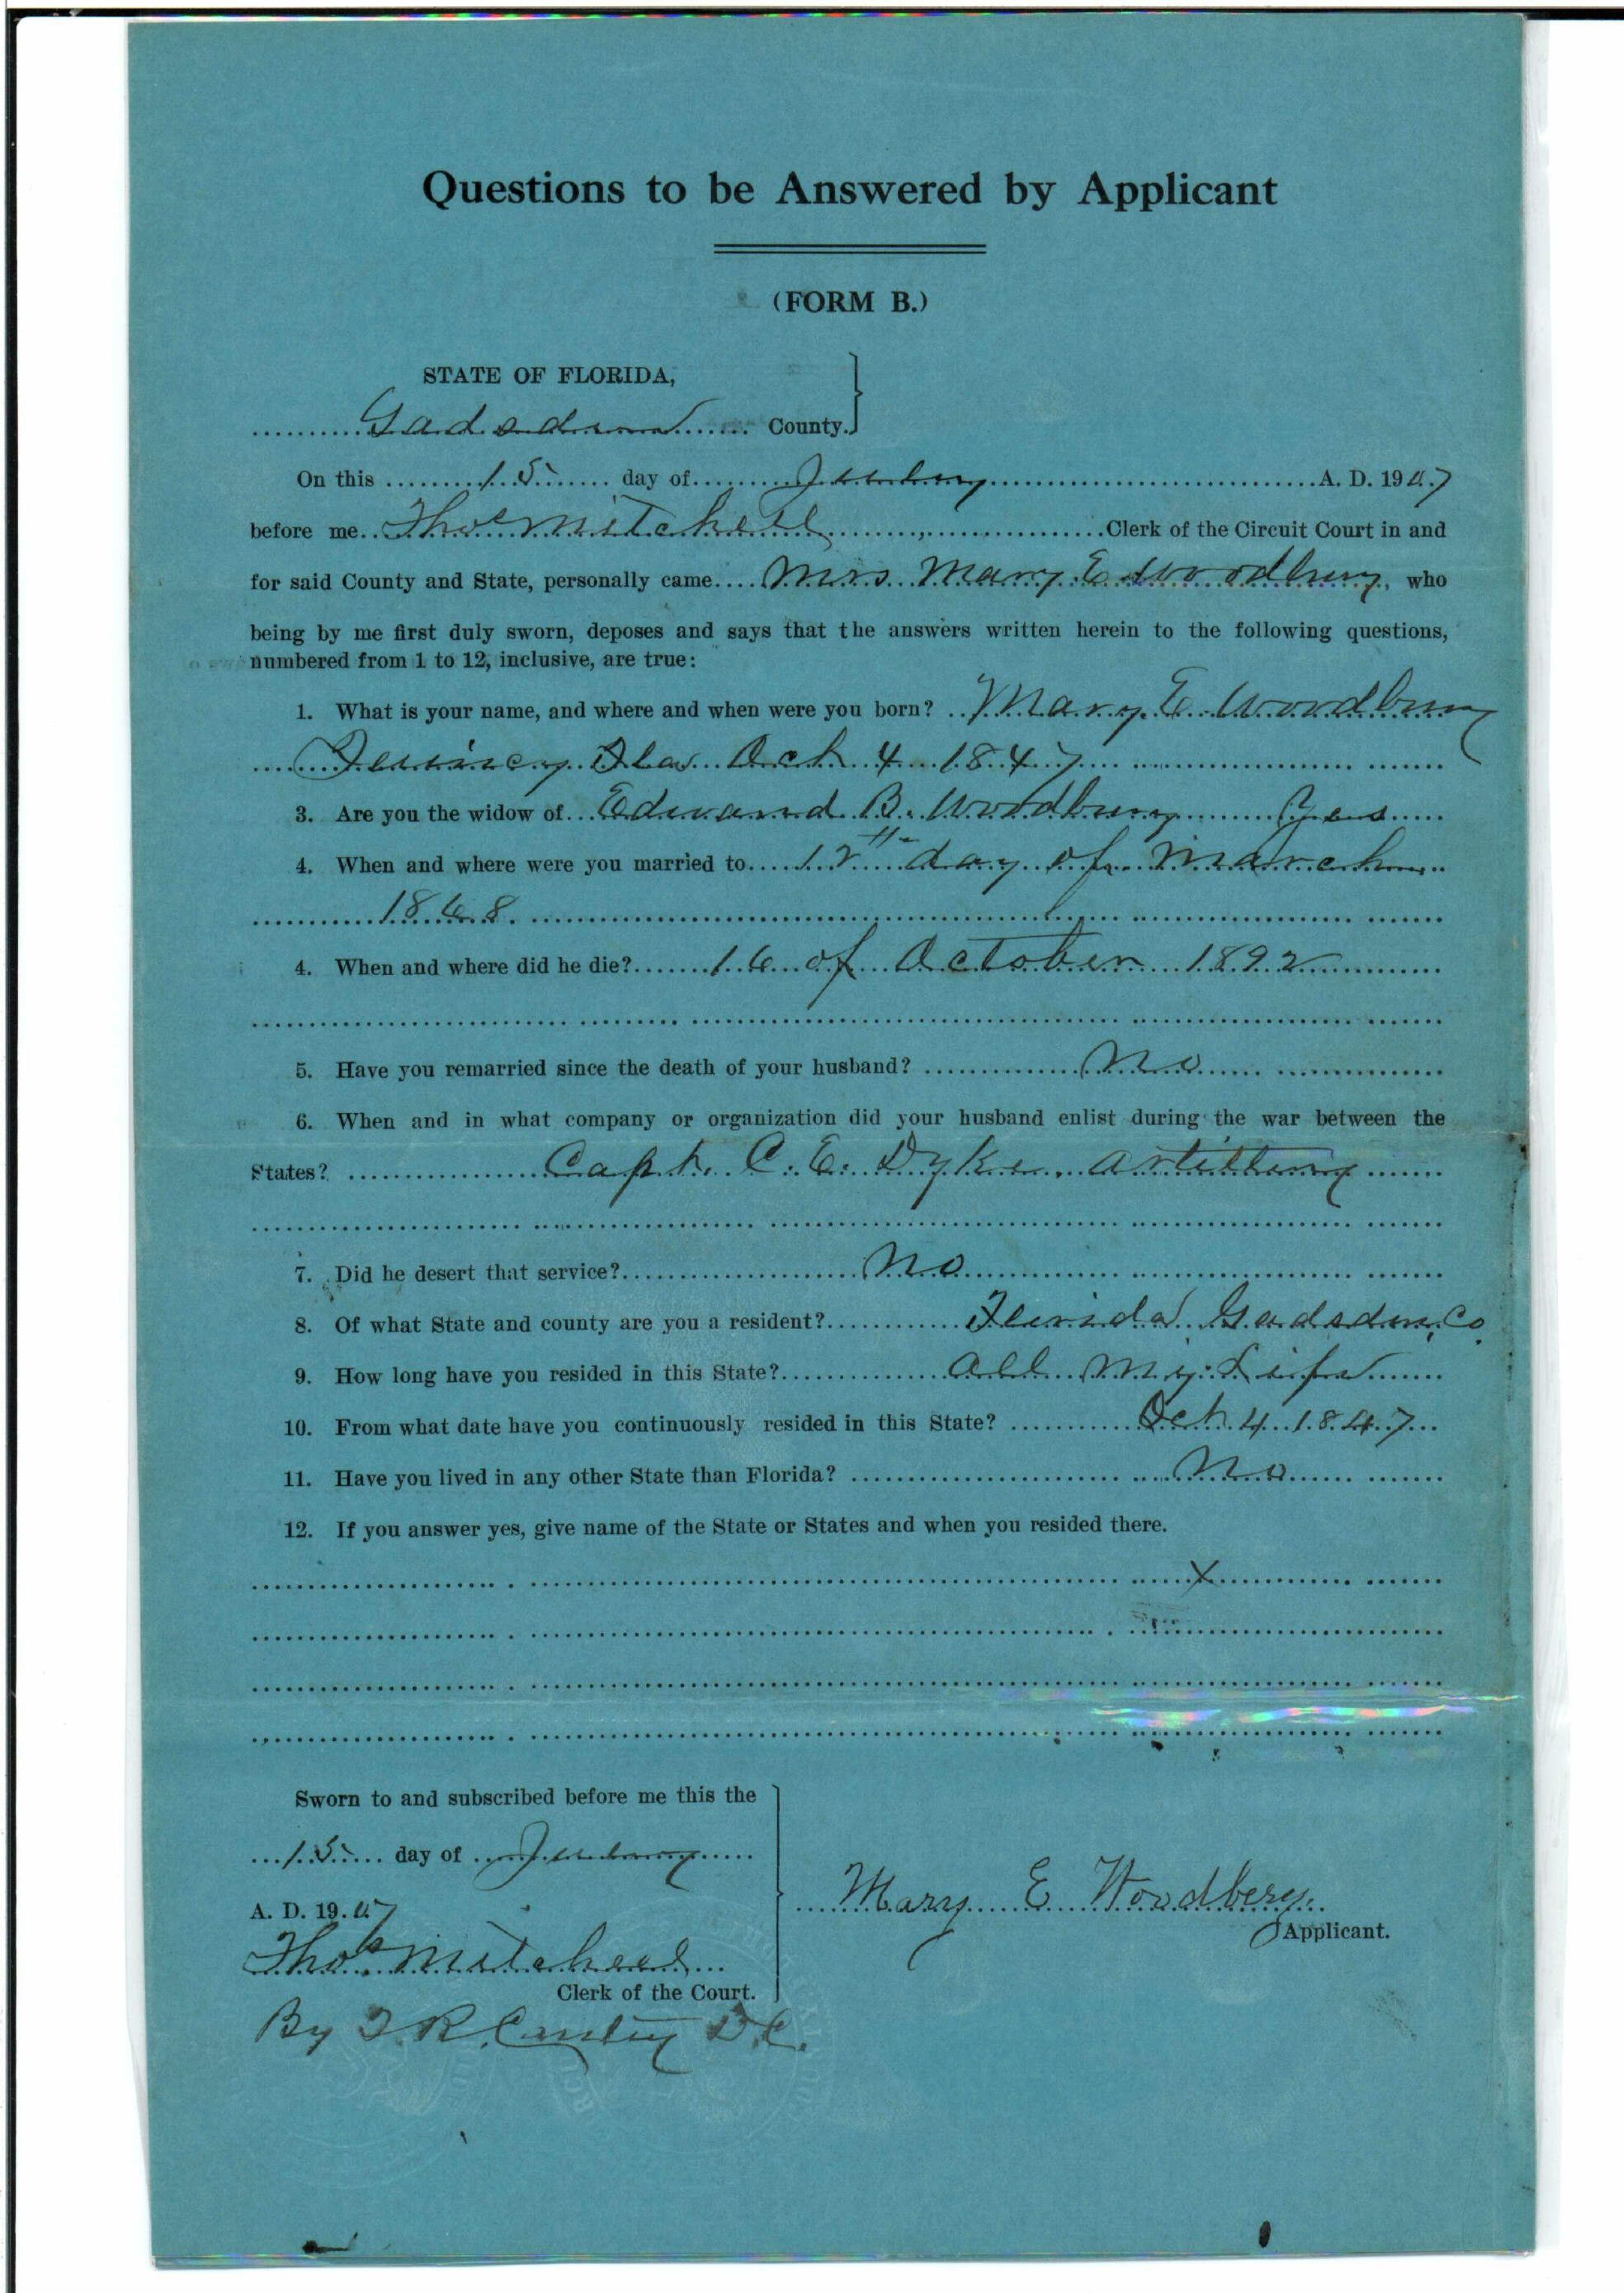 Questions to be Answered by Applicant
(FORM B.)
STATE OF FLORIDA,
Gadsden County.
On this 15 day of A. D. 1907
before me Thos Mitchell Clerk of the Circuit Court in and
for said County and State, personally came Mrs Mary E Woodbery, who
being by me first duly sworn, deposes and says that the answers written herein to the following questions,
numbered from 1 to 12, inclusive, are true:
1. What is your name, and where and when were you born? Mary E Woodbery
Quincy Fla Oct 4 1847
3. Are you the widow of Edward B. Woodbery Yes
4. When and where were you married to 12th day of March
1868.
4. When and where did he die? 16 of October 1892
5. Have you remarried since the death of your husband? No
6. When and in what company or organization did your husband enlist during the war between the
States? Capt. C. E. Dyke. Artillery
7. Did he desert that service? No
8. Of what State and county are you a resident? Florida Gadsden, Co.
9. How long have you resided in this State? All my Life
10. From what date have you continuously resided in this State? Oct 4 1847
11. Have you lived in any other State than Florida? No
12. If you answer yes, give name of the State or States and when you resided there.
X
Sworn to and subscribed before me this the
15 day of
A. D. 1907
Thos Mitchell
Clerk of the Court.
By R D.C.
Mary E Woodbery
Applicant.